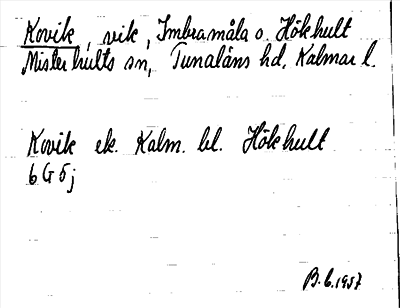 Kovik, vik, Imbramåla o. Hökhult
Misterhults sn, Tunaläns hd, Kalmar l.
Kovik ek. Kalm. bl. Hökhult
6G5j
B.L. 1957